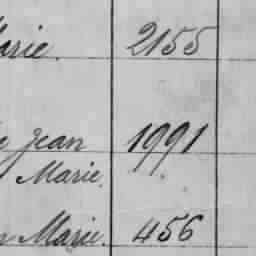 Marie. 2155
Jean 1991
Marie.
Marie. 456